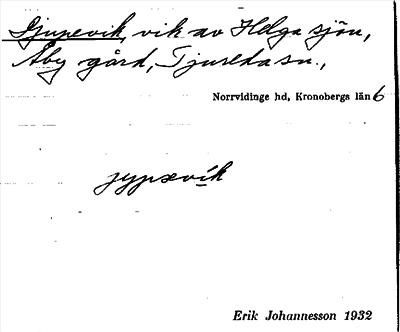 Djupevik, vik av Helga sjön,
Åby gård, Tjureda sn.,
Norrvidinge hd, Kronobergs län 6
jypəvik
Erik Johannesson 1932